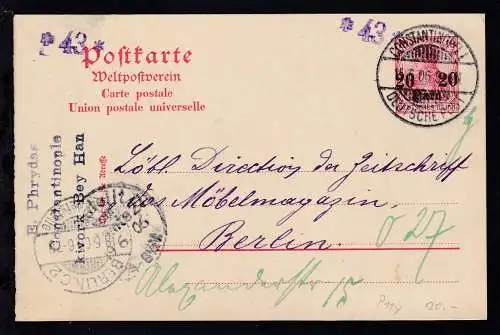 * 43 *
* 43 *
Postkarte
Weltpostverein
Carte postale
Union postale universelle
CONSTANTINOPEL 1
05
20 20
DEUTSCHE POST
E. Phrydas
Constantinople
kwork Bey Han
Löbl. Direction der Zeitschrift
das Möbelmagazin,
Berlin.
O 27
Alexanderstr
BERLIN C2
P11y 20.-